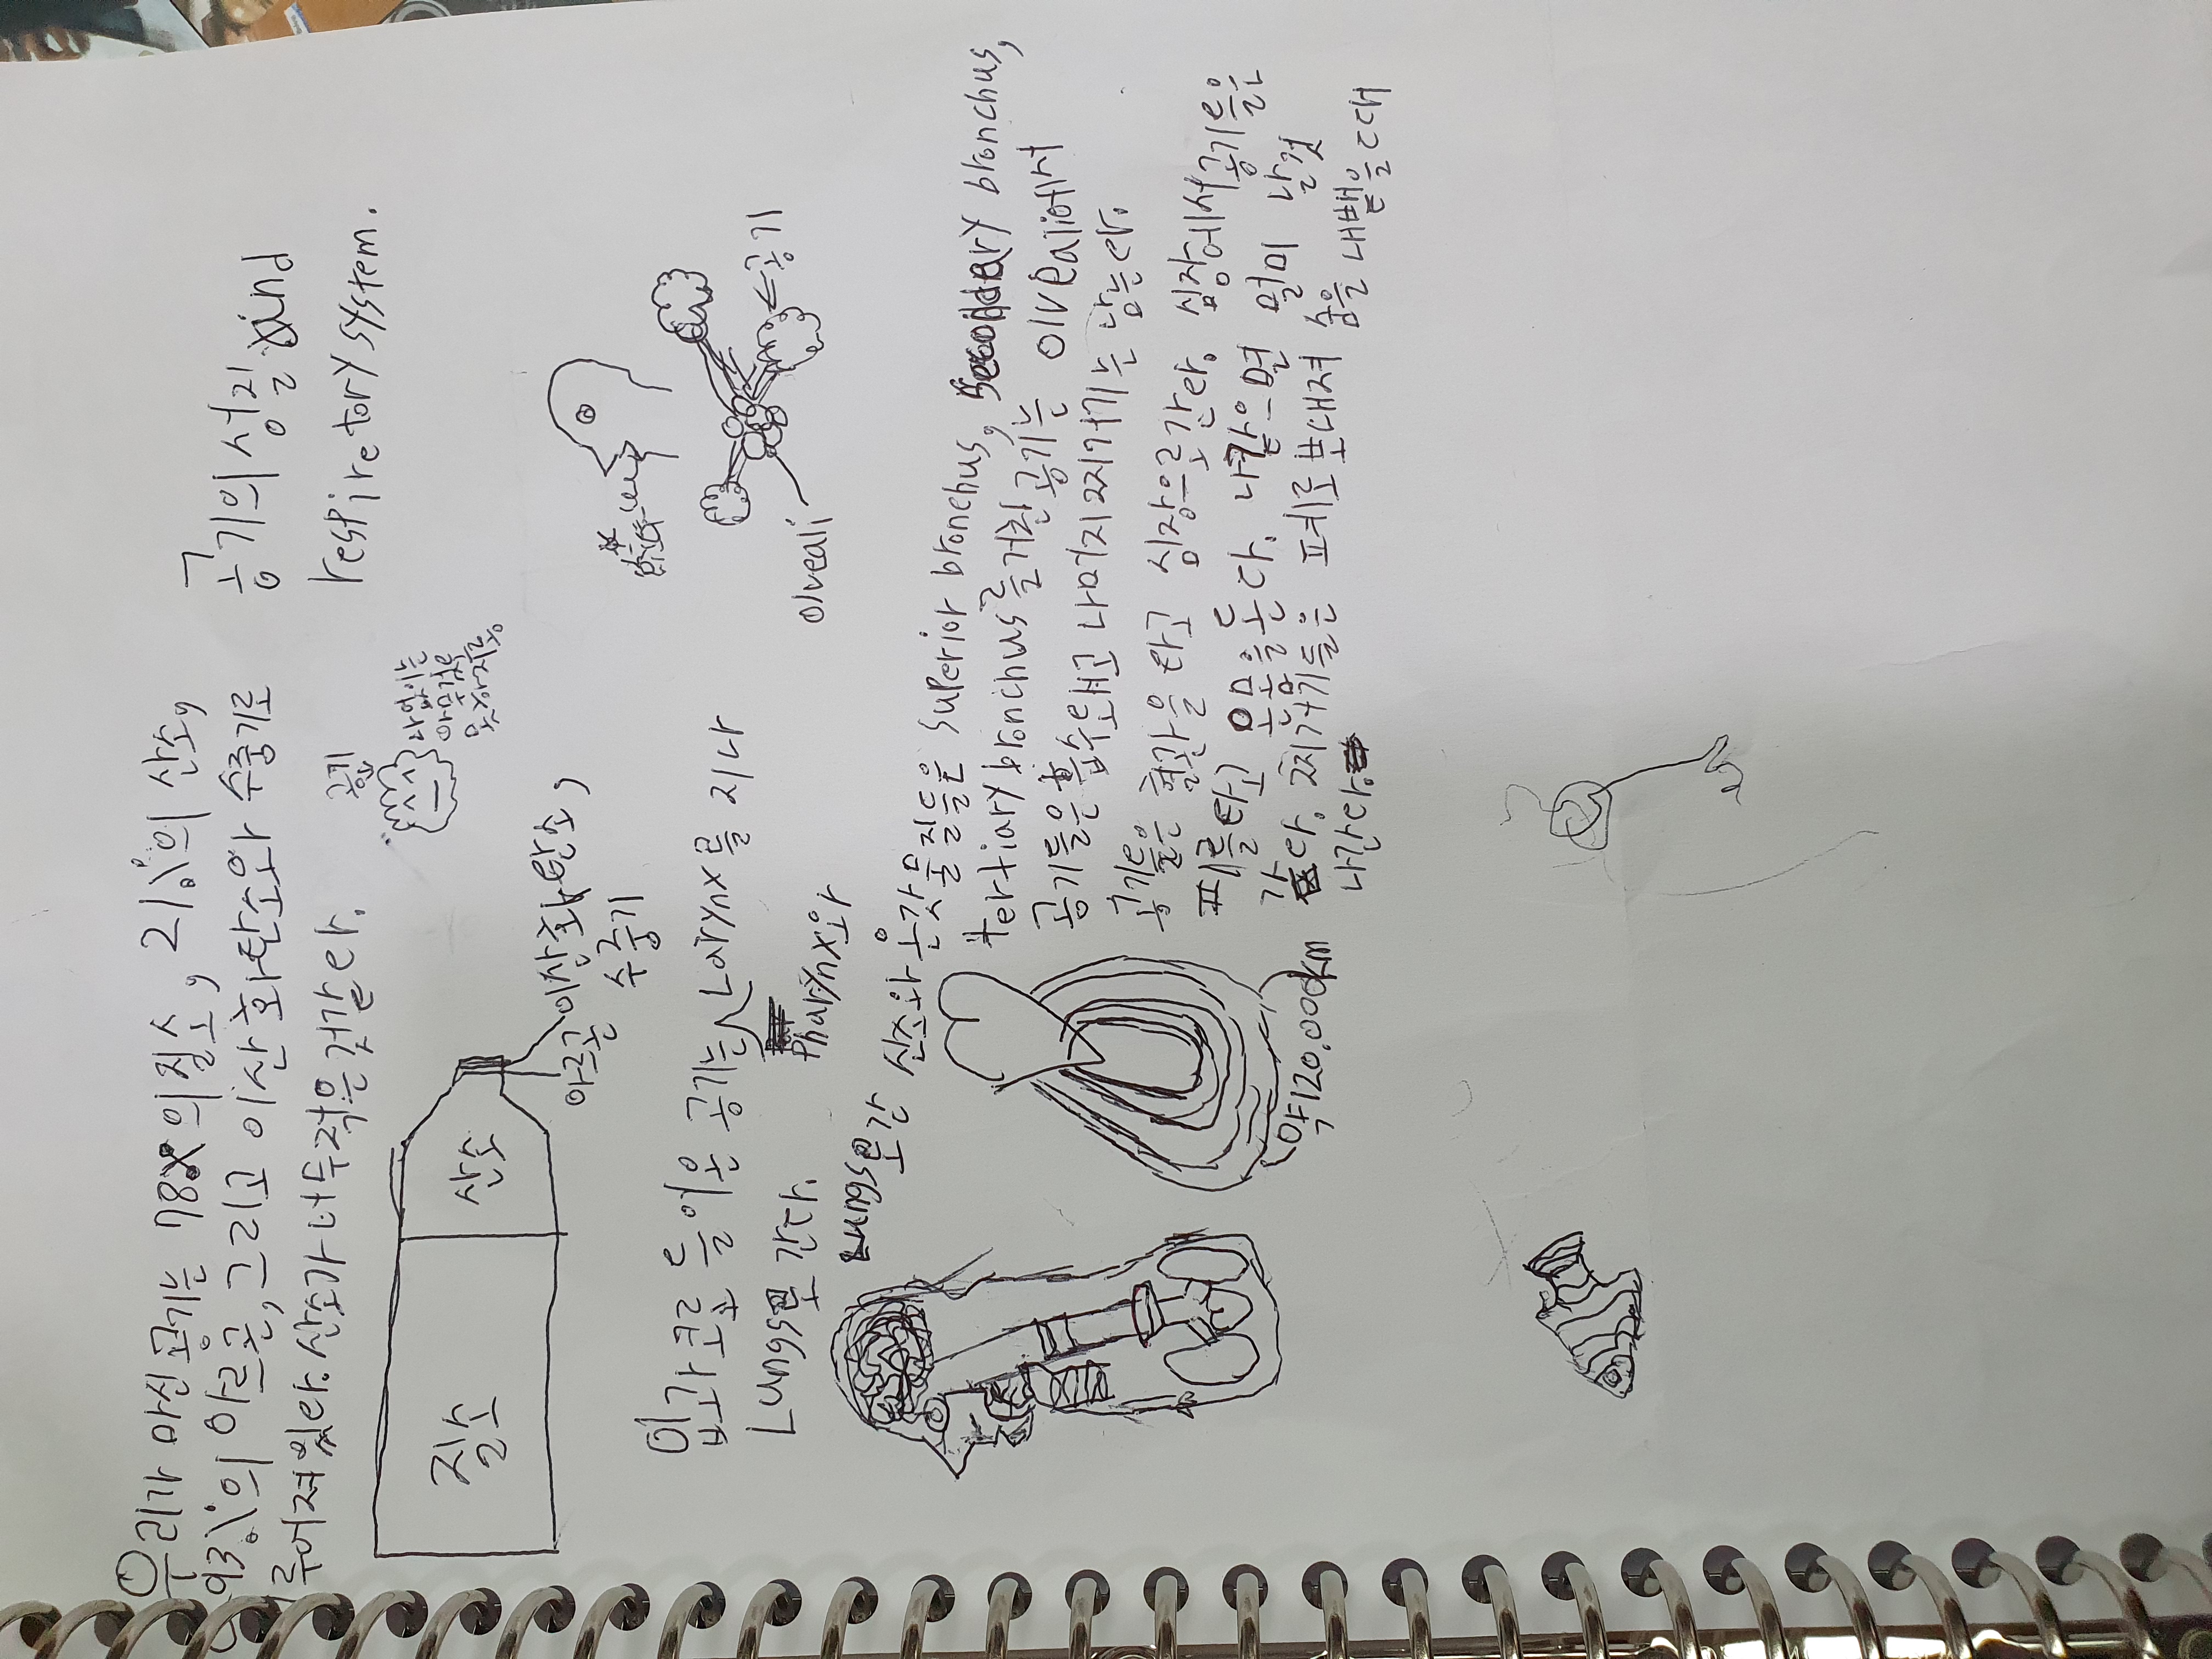 공기의 성질 and
respiretory system.
우리가 마신 공기는 78%의 질소, 21%의 산소,
0.93%의 아르곤, 그리고 이산화탄소와 수중기로
이루어져있다. 산소가 너무 적은것같다.
공기
나없이는
아무것도
질소
산소
아르곤
이산화탄소,
수중기
공기
olveali
입과 코로 들어온 공기는 Larynx를 지나
Pharynx와
Lungs로 간다.
Lungs로 간 산소와 온갖 물질들은 superior bronchus, secondary bronchus,
tertiary bronchus를 거친 공기는 olveali에서
공기들은 흡수돼고 나머지 찌꺼기는 남는다.
공기들은 혈관을 타고 심장으로 간다. 심장에서 공기들은
피를 타고 온몸을 돈다. 나같으면 멀미 날것
같다. 찌꺼기들은 폐로 보내져 숨을 내뱉을 때
나간다.
약 120.000km